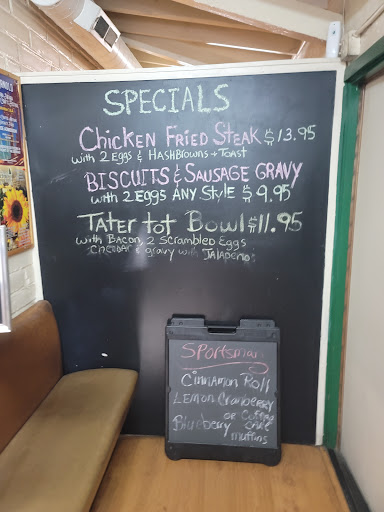 SPECIALS
Chicken Fried Steak $13.95
with 2 Eggs & HASHBrowns + Toast
BISCUITS & SAUSAGE GRAVY
with 2 EGGS ANY STYLE $9.95
TATER TOT BOWL $11.95
with Bacon, 2 Scrambled Eggs
Cheddar & gravy with JALAPENOS
SPORTSMAN
Cinnamon Roll
LEMON Cranberry
or Coffee
Blueberry cake
muffins